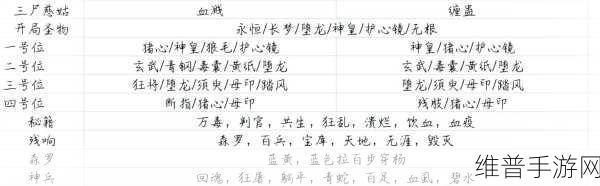 三尸慈姑 血溅 缠蛊
开局圣物 永恒/长梦/堕龙/神皇/护心镜/无根
一号位 猪心/神皇/狼毛/护心镜 神皇/猪心/护心镜
二号位 玄武/青铜/毒囊/黄纸/堕龙 玄武/毒囊/黄纸/堕龙
三号位 狂将/堕龙/须臾/母印/踏风 堕龙/须臾/母印/踏风
四号位 断指/猪心/母印 残肢/猪心/母印
秘籍 万毒，判官，共生，狂乱，溃烂，饮血，血疫
残响 森罗，百兵，宝库，天地，无涯，毁灭
森罗 蓝黄，蓝色拉百步穿杨
神兵 回魂，狂屠，躺平，青蛇，百足，血虱，碧水
维普手游网